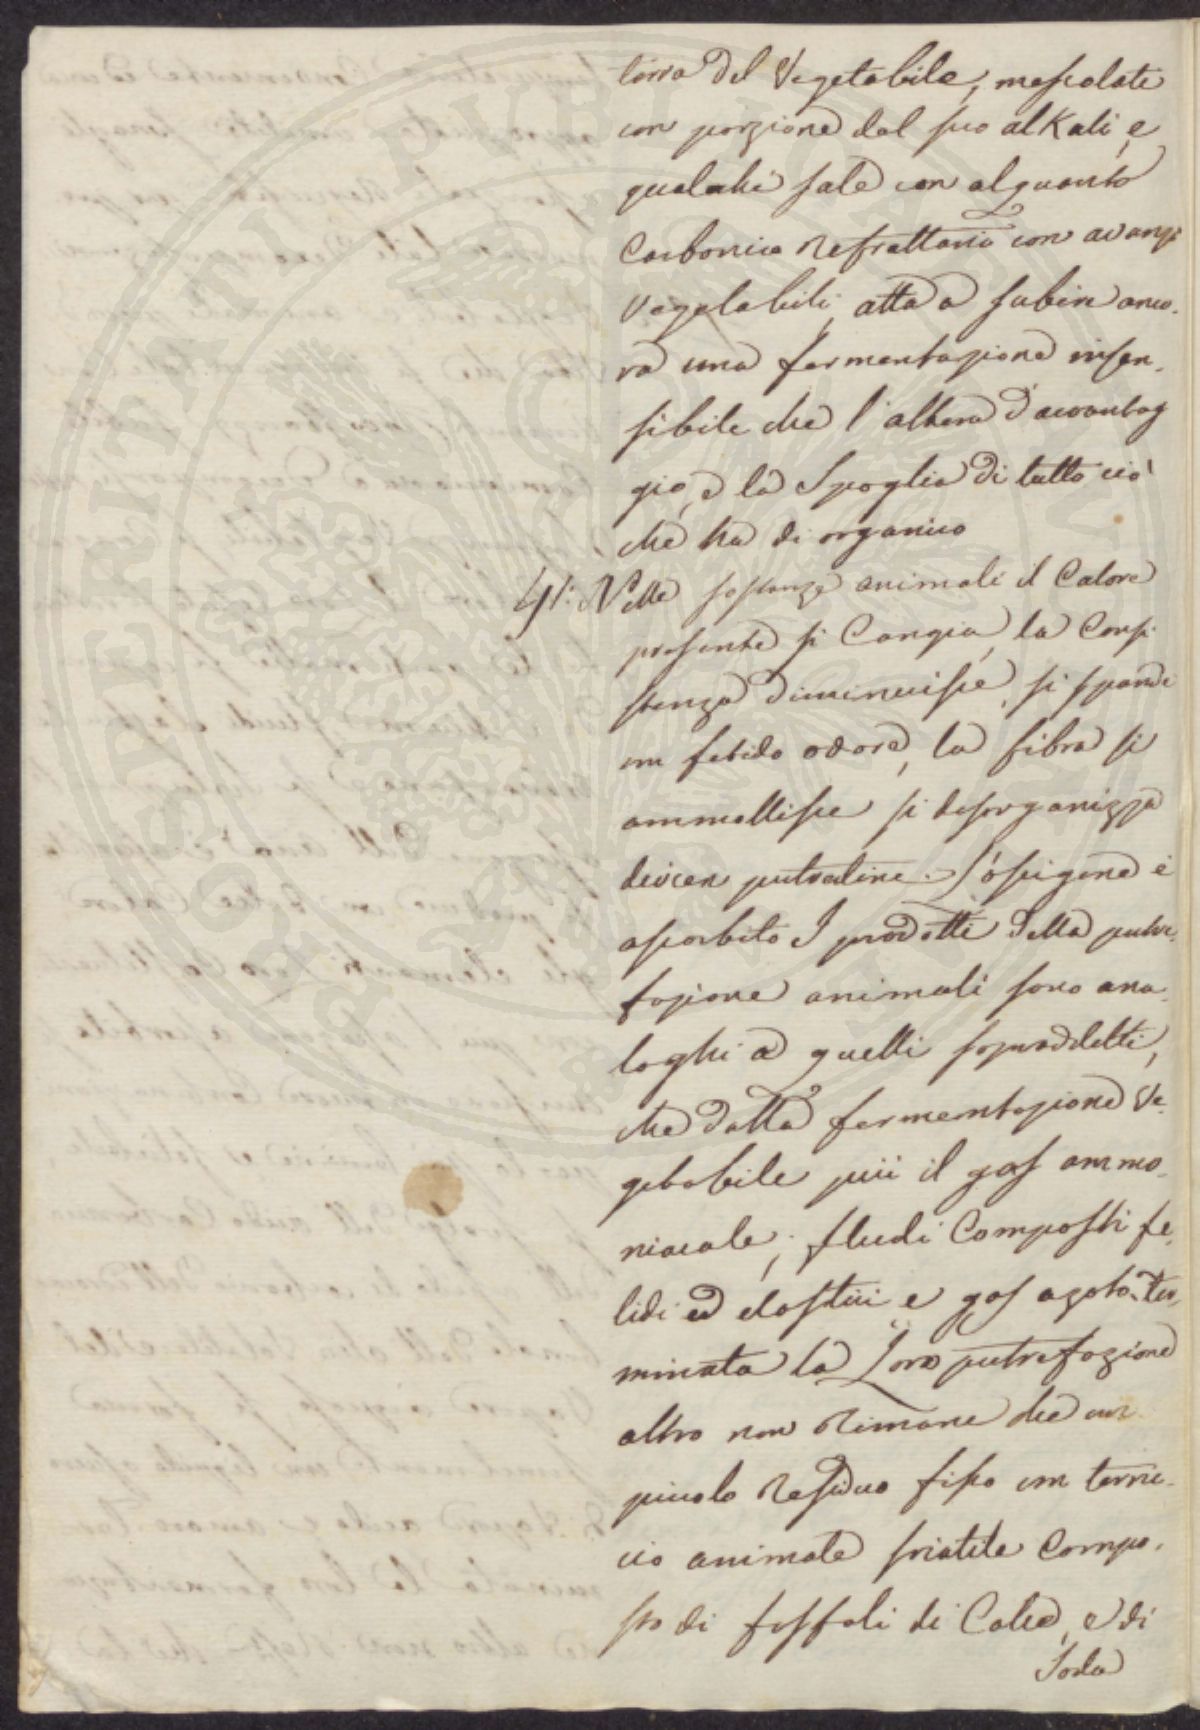 terra del Vegetabile, mescolate
con porzione del suo alKali, e
qualche sale con alquanto
Carbonica Refrattaria con avanzi
Vegetabili, atta a subire anco-
ra una fermentazione insen-
sibile che l'altera d'avvantag
gio, e la Spoglia di tutto ciò
che ha di organico
41: Nelle sostanze animali il Calore
presente si Cangia, la Consi
stenza diminuisce, si spande
un fetido odore, la fibra si
ammollisce si desorganizza
devien putredine. L'ossigene è
assorbito I prodotti della putre-
fazione animali sono ana-
loghi a quelli sopraddetti,
che dalla fermentazione Ve-
getabile più il gas ammo-
niacale, fluidi Composti fe-
tidi ed elastici e gas azoto. Ter-
minata la Loro putrefazione
altro non Rimane che un
piccolo Residuo fisso un terric-
cio animale friabile Compo-
sto di fosfati di Calce, e di
Soda
PROSPERITATI PUBLICAE